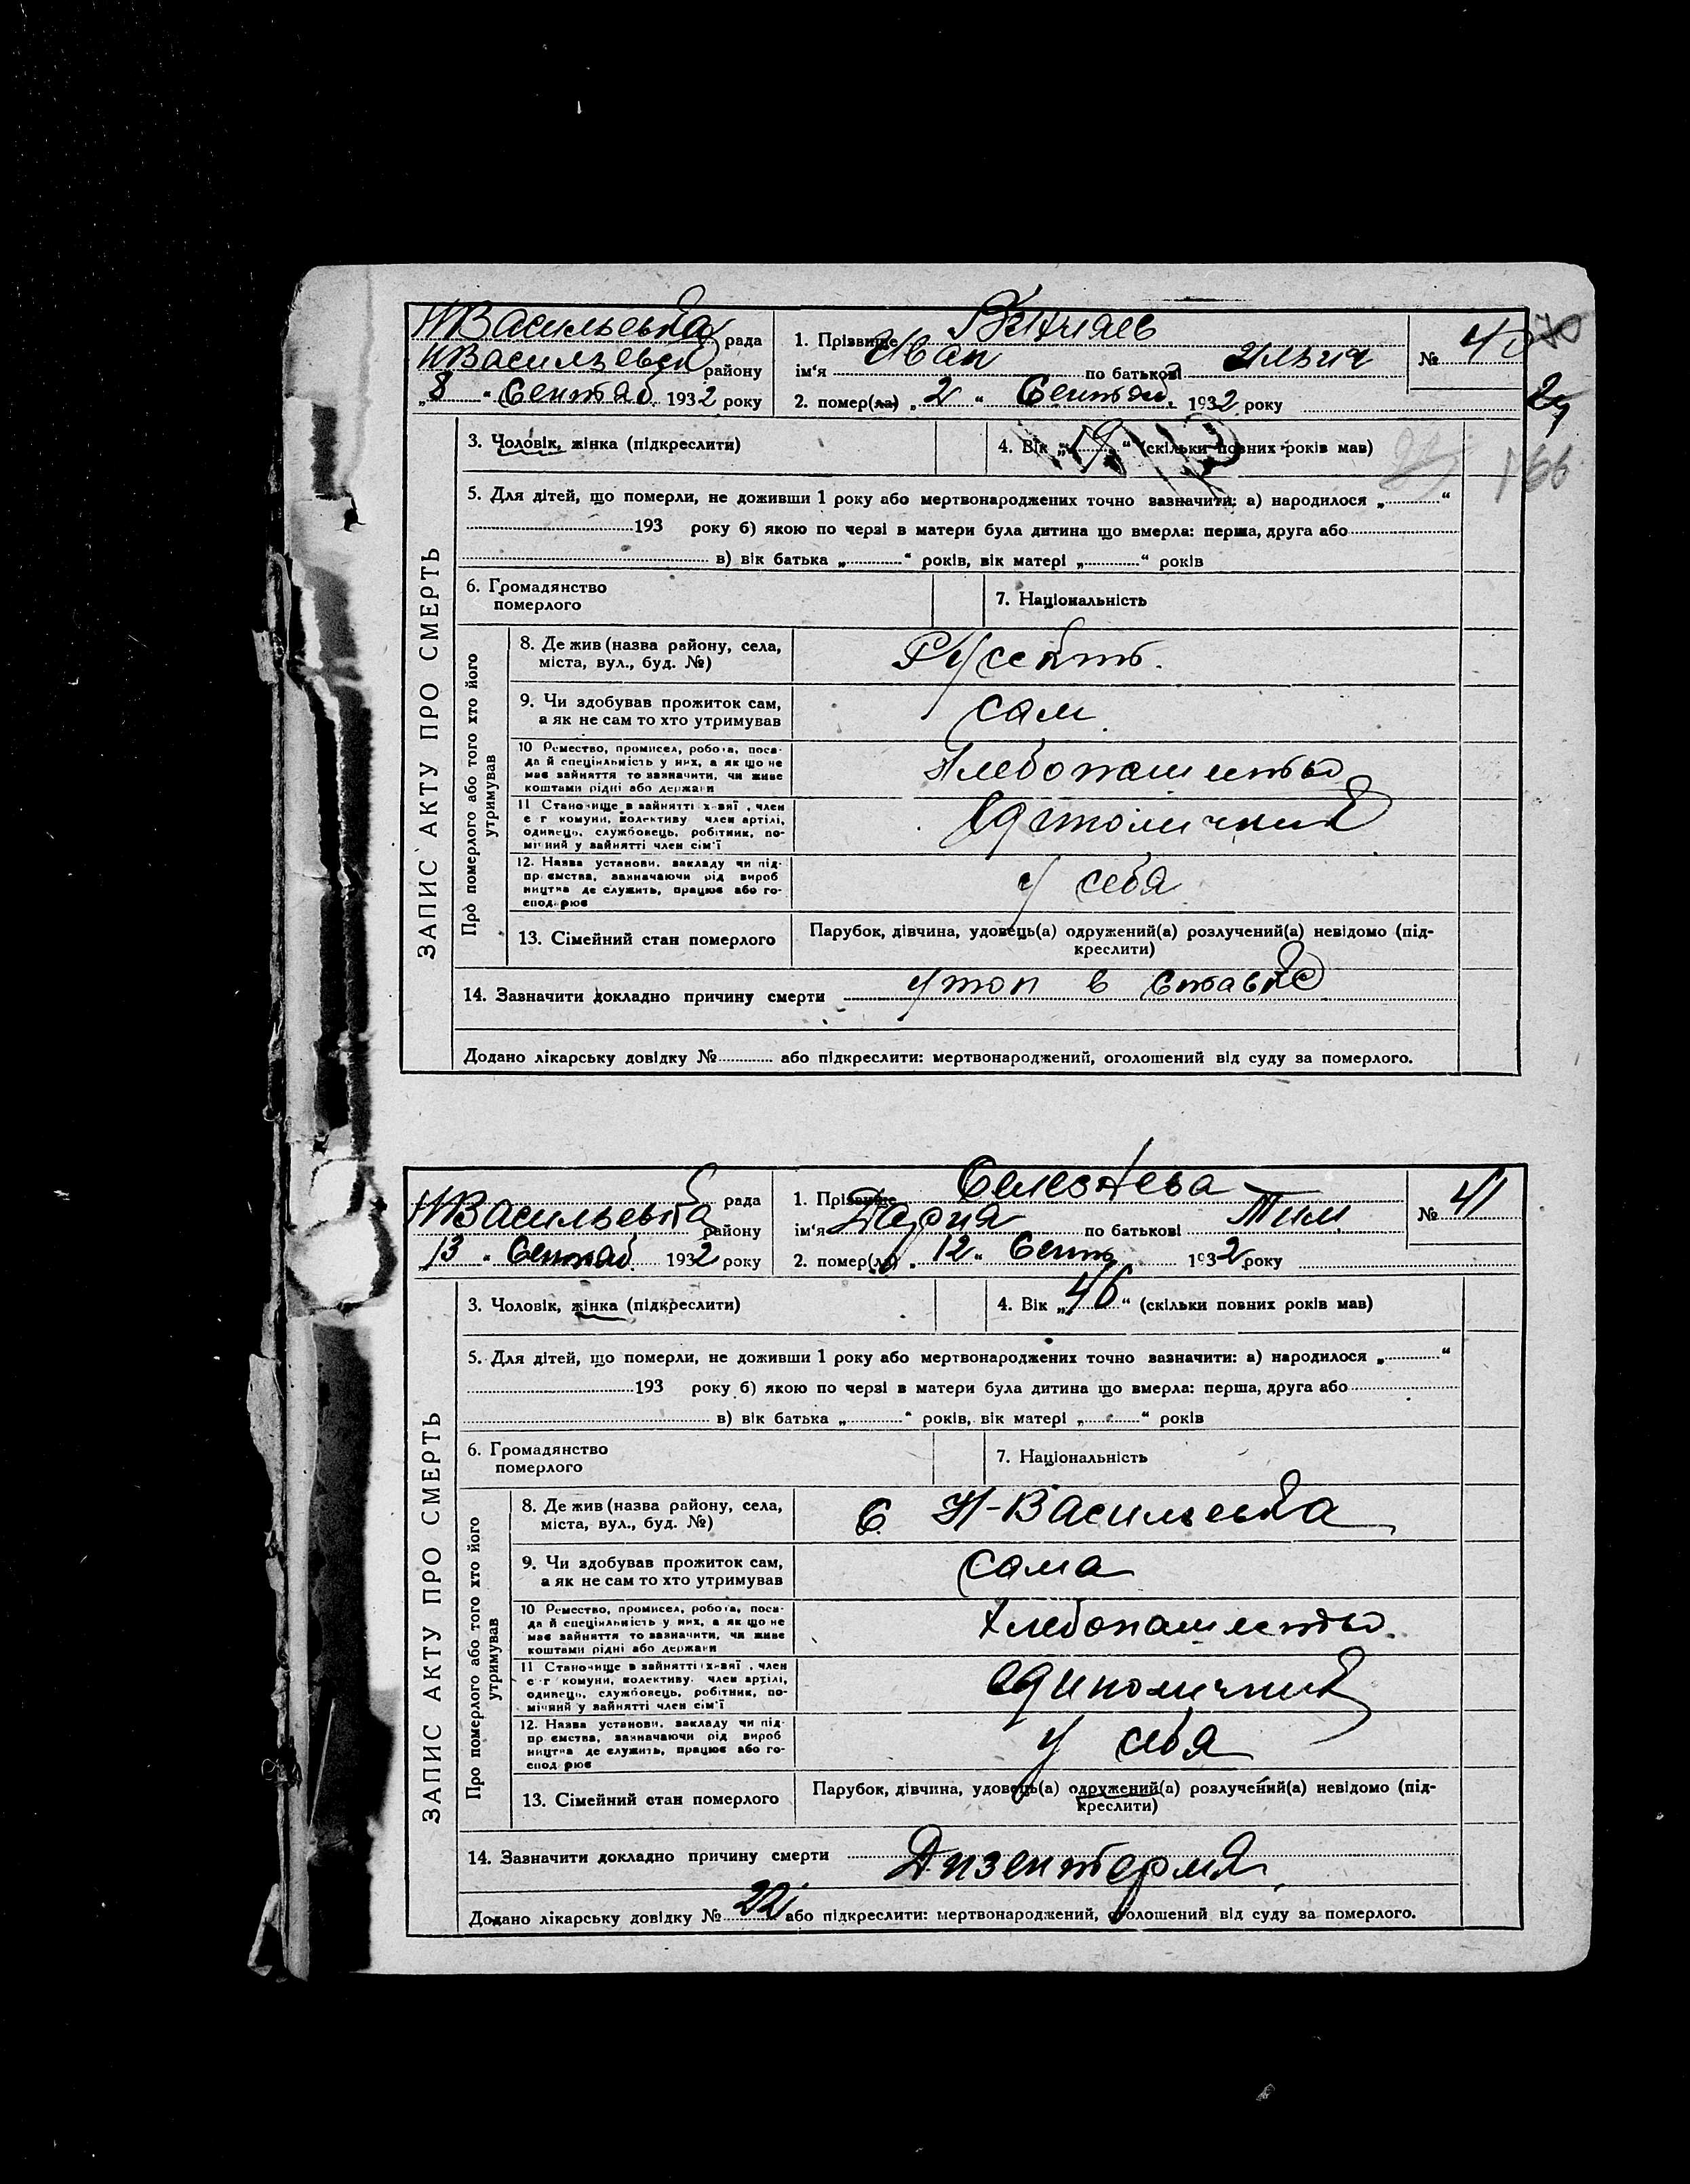 Н Васильевка рада
Н Васильевск району
„8“ Сентяб. 1932 року
1. Прізвище
ім'я Иван по батькові Ильич
2. помер(ла) „2“ Сентяб. 1932 року
№ 40
ЗАПИС АКТУ ПРО СМЕРТЬ
3. Чоловік, жінка (підкреслити)
4. Вік „ “ (скільки повних років мав)
166
5. Для дітей, що померли, не доживши 1 року або мертвонароджених точно зазначити: а) народилося „ “
193 року б) якою по черзі в матери була дитина що вмерла: перша, друга або
в) вік батька „ “ років, вік матері „ “ років
6. Громадянство
померлого
7. Національність
Про померлого або того хто його
утримував
8. Де жив (назва району, села,
міста, вул., буд. №)
9. Чи здобував прожиток сам,
а як не сам то хто утримував
сам
10 Ремество, промисел, робота, поса-
да й спеціяльність у них, а як що не
має зайняття то зазначити, чи живе
коштами рідні або держави
Хлебопашество
11 Становище в зайнятті х-вяї , член
с г комуни, колективу член артілі,
одинець, службовець, робітник, по-
мічний у зайнятті член сім'ї
Единоличник
12. Назва установи, закладу чи під-
пр ємства, зазначаючи рід вироб
ництва де служить, працює або го-
сподарює
у себя
13. Сімейний стан померлого
Парубок, дівчина, удовець(а) одружений(а) розлучений(а) невідомо (під-
креслити)
14. Зазначити докладно причину смерти утоп в ставке
Додано лікарську довідку № або підкреслити: мертвонароджений, оголошений від суду за померлого.
рада
Н Васильевка району
„13“ Сентяб. 1932 року
1. Прізвище Селезнева
ім'я Дария по батькові Тим
2. помер(ла) „12“ Сент 1932 року
№ 41
ЗАПИС АКТУ ПРО СМЕРТЬ
3. Чоловік, жінка (підкреслити)
4. Вік „46“ (скільки повних років мав)
5. Для дітей, що померли, не доживши 1 року або мертвонароджених точно зазначити: а) народилося „ “
193 року б) якою по черзі в матери була дитина що вмерла: перша, друга або
в) вік батька „ “ років, вік матері „ “ років
6. Громадянство
померлого
7. Національність
Про померлого або того хто його
утримував
8. Де жив (назва району, села,
міста, вул., буд. №)
С. Н-Васильевка
9. Чи здобував прожиток сам,
а як не сам то хто утримував
сама
10 Ремество, промисел, робота, поса-
да й спеціяльність у них, а як що не
має зайняття то зазначити, чи живе
коштами рідні або держави
хлебопашество.
11 Становище в зайнятті х-вяї , член
с г комуни, колективу. член артілі,
одинець, службовець, робітник, по-
мічний у зайнятті член сім'ї
единоличник
12. Назва установи, закладу чи під-
пр ємства, зазначаючи рід вироб
ництва де служить, працює або го-
сподарює
у себя
13. Сімейний стан померлого
Парубок, дівчина, удовець(а) одружений(а) розлучений(а) невідомо (під-
креслити)
14. Зазначити докладно причину смерти Дизентерия
Додано лікарську довідку № 22 або підкреслити: мертвонароджений, оголошений від суду за померлого.